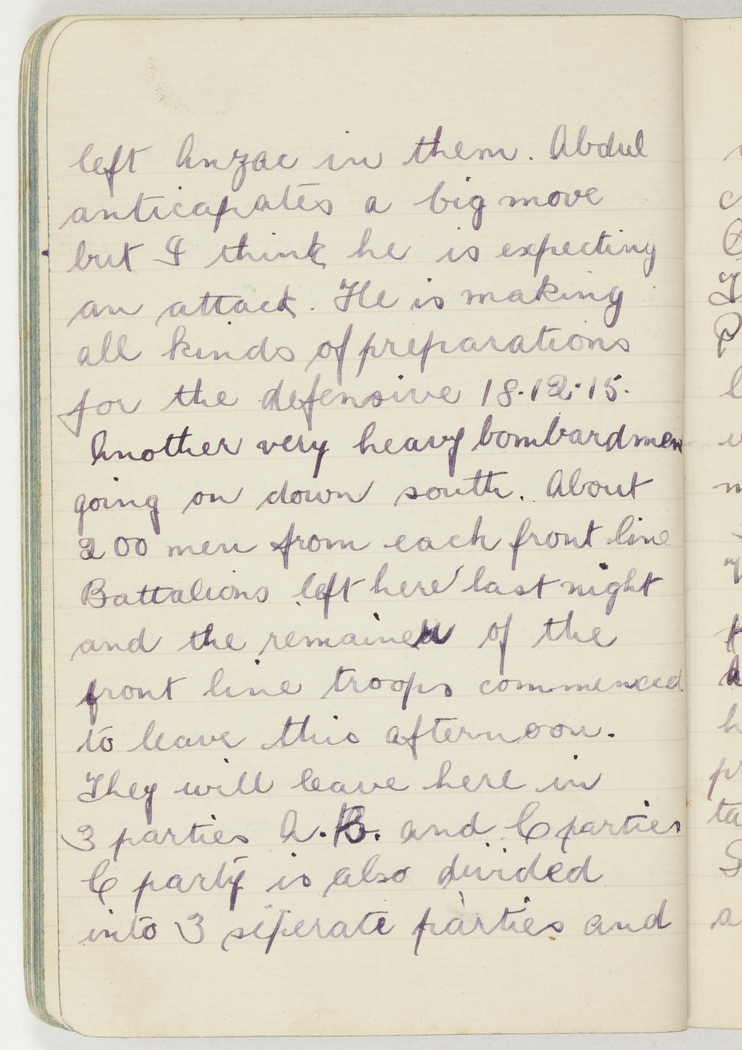 left Anzac in them. Abdul
anticapates a big move
but I think he is expecting
an attack. He is making
all kinds of preparations
for the defensive 18.12.15.
Another very heavy bombardmen
going on down south. About
200 men from each front line
Battalions left here last night
and the remained of the
front line troops commenced
to leave this afternoon.
They will leave here in
3 parties A.B. and C parties
C party is also divided
into 3 seperate parties and